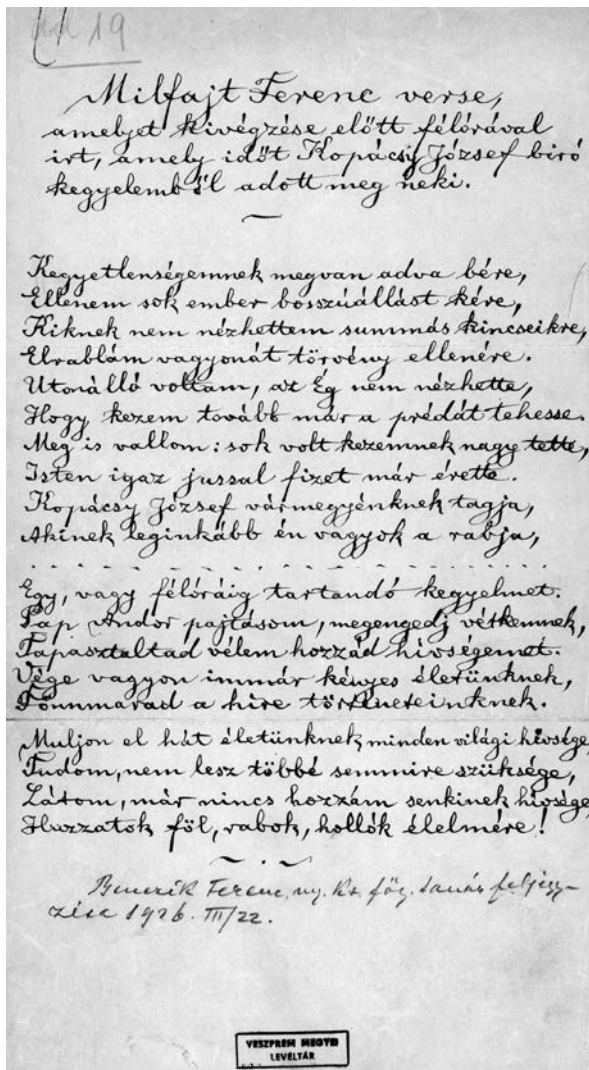 ad 19
Milfajt Ferenc verse,
amelyet kivégzése előtt félórával
irt, amely időt Kopácsy József biró
kegyelemből adott meg neki.
Kegyetlenségemnek megvan adva bére,
Ellenem sok ember bosszúállást kére,
Kiknek nem nézhettem summás kincseikre,
Elrablám vagyonát törvény ellenére.
Utonálló voltam, az Ég nem nézhette,
Hogy kezem tovább már a prédát tehesse.
Meg is vallom: sok volt kezemnek nagy tette,
Isten igaz jussal fizet már érette.
Kopácsy József vármegyénknek tagja,
Akinek leginkább én vagyok a rabja,
. . . . . . . . . . . . . . . . . . . .
Egy, vagy félóráig tartandó kegyelmet.
Pap Andor pajtásom, megengedj vétkemnek,
Tapasztaltad vélem hozzád hivségemet.
Vége vagyon immár kényes életünknek,
Fönnmarad a hire történeteinknek.
Muljon el hát életünknek minden világi hivsége,
Tudom, nem lesz többé semmire szüksége,
Látom, már nincs hozzám senkinek hivsége,
Huzzatok föl, rabok, hollók élelmére!
Benczik Ferenc, ny. kr. főg. tanár feljegy-
zése 1926. III/22.
VESZPRÉM MEGYEI
LEVÉLTÁR